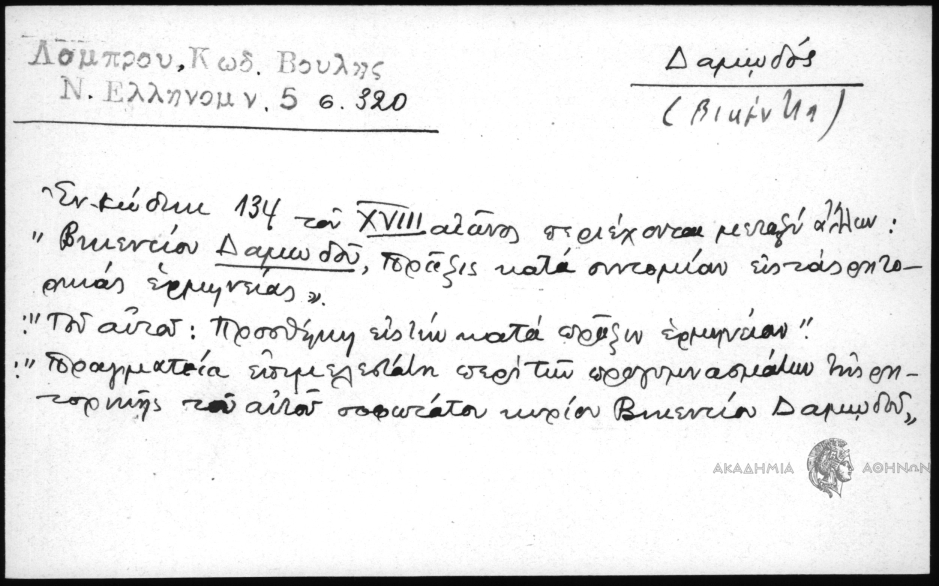 Λάμπρου, Κωδ. Βουλης
Ν. Ελληνομν. 5 σ. 320
Δαμῳδός
(Βικέντιος)
Ἐν κώδικι 134 τοῦ XVIII αἰῶνος περιέχονται μεταξὺ ἄλλων:
"Βικεντίου Δαμῳδοῦ, Πρᾶξις κατὰ συντομίαν εἰς τὰς ῥητο-
ρικὰς ἑρμηνείας".
"Τοῦ αὐτοῦ: Προσθήκη εἰς τὴν κατὰ πρᾶξιν ἑρμηνείαν"
"Πραγματεία ἐπιμελεστάτη περὶ τῶν προγυμνασμάτων τῆς ῥη-
τορικῆς τοῦ αὐτοῦ σοφωτάτου κυρίου Βικεντίου Δαμῳδοῦ"
ΑΚΑΔΗΜΙΑ ΑΘΗΝΩΝ